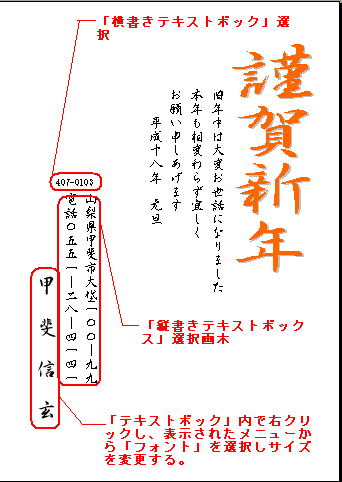 「横書きテキストボック」選
択
謹賀新年
旧年中は大変お世話になりました
本年も相変わらず宜しく
お願い申しあげます
平成十八年　元旦
407-0103
山梨県甲斐市大垈一〇〇ー九九
電話〇五五一ー二八ー四一四一
甲斐信玄
「縦書きテキストボック
ス」選択画未
「テキストボック」内で右クリ
ックし、表示されたメニューか
ら「フォント」を選択しサイズ
を変更する。